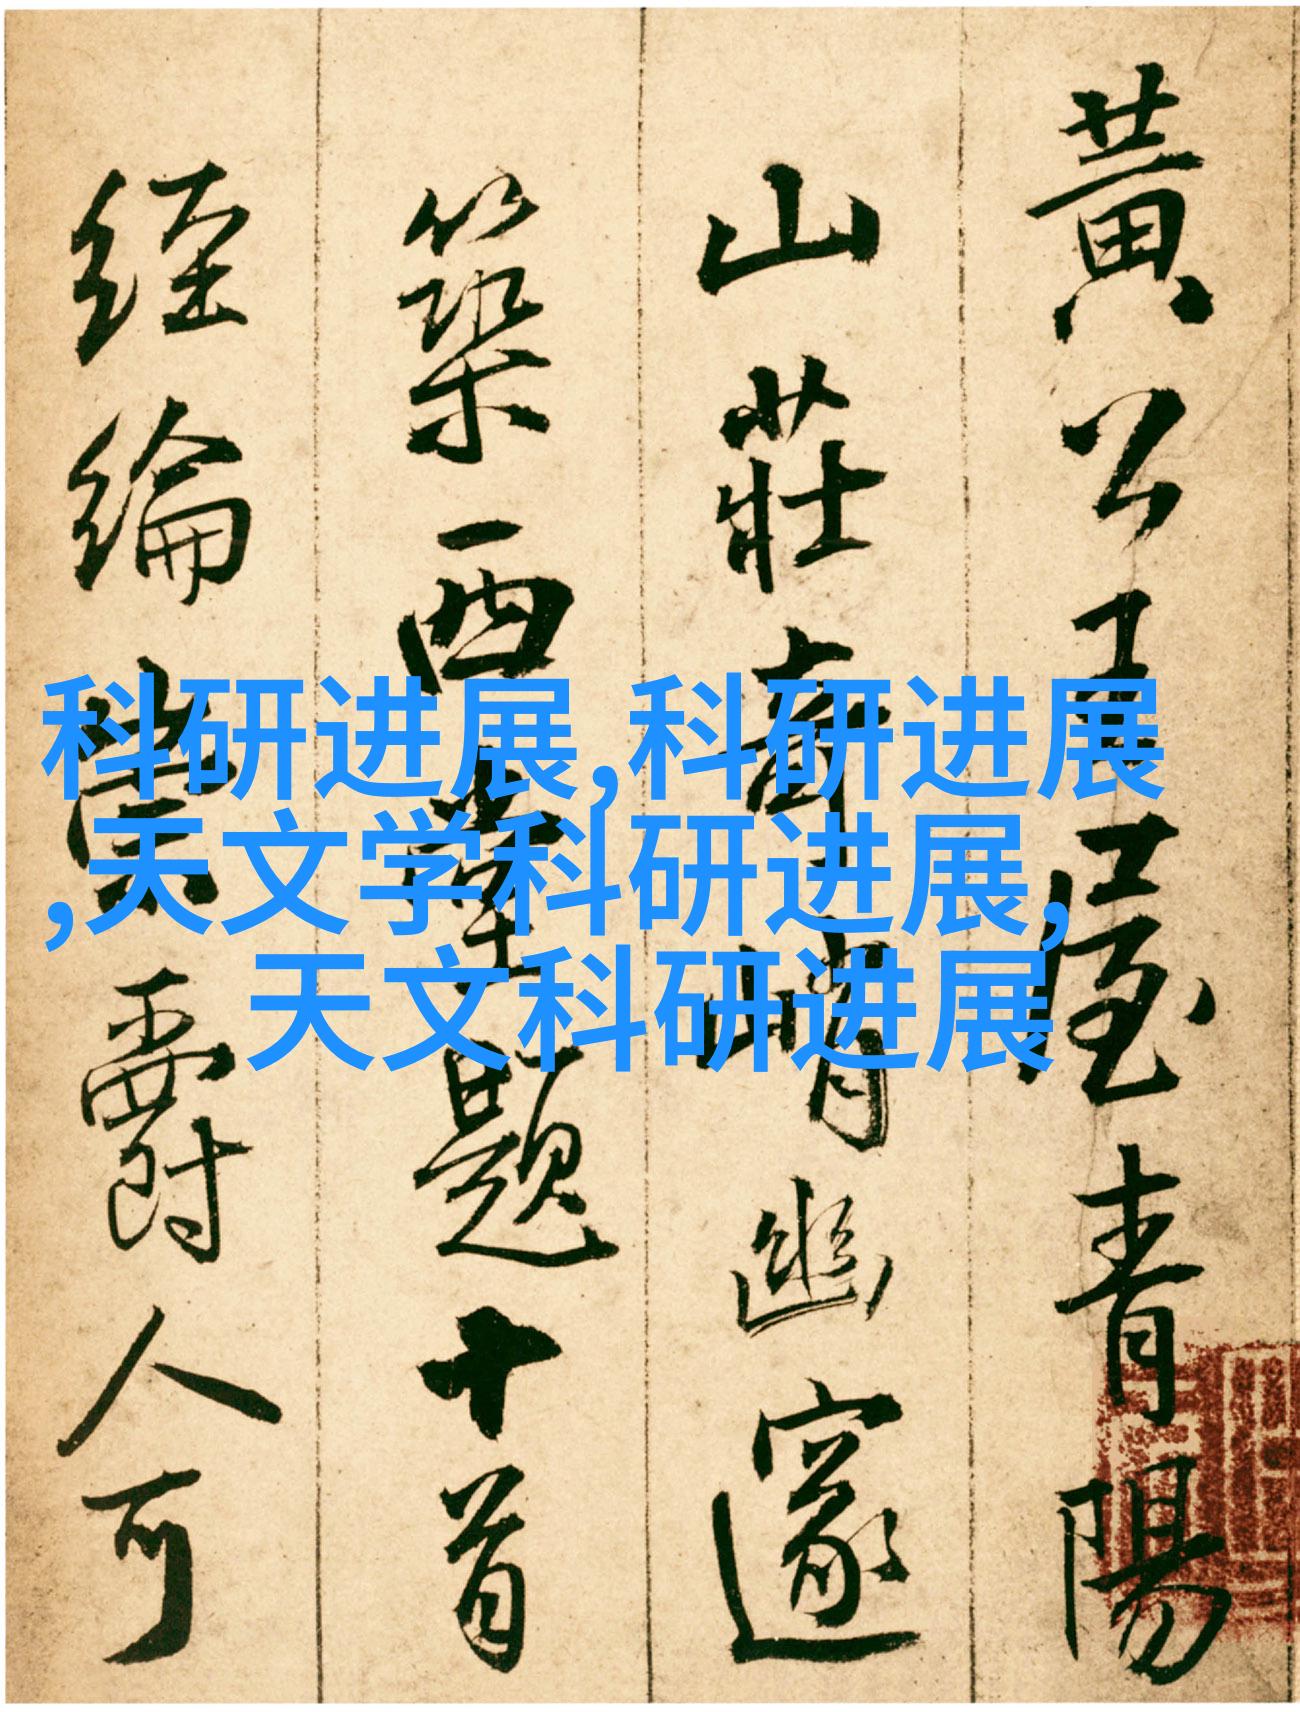 黄公王屋青陽
山莊奇峭幽邃
築西臺題十首
經綸縈爵人可
科研进展,科研进展
,天文学科研进展,
天文科研进展